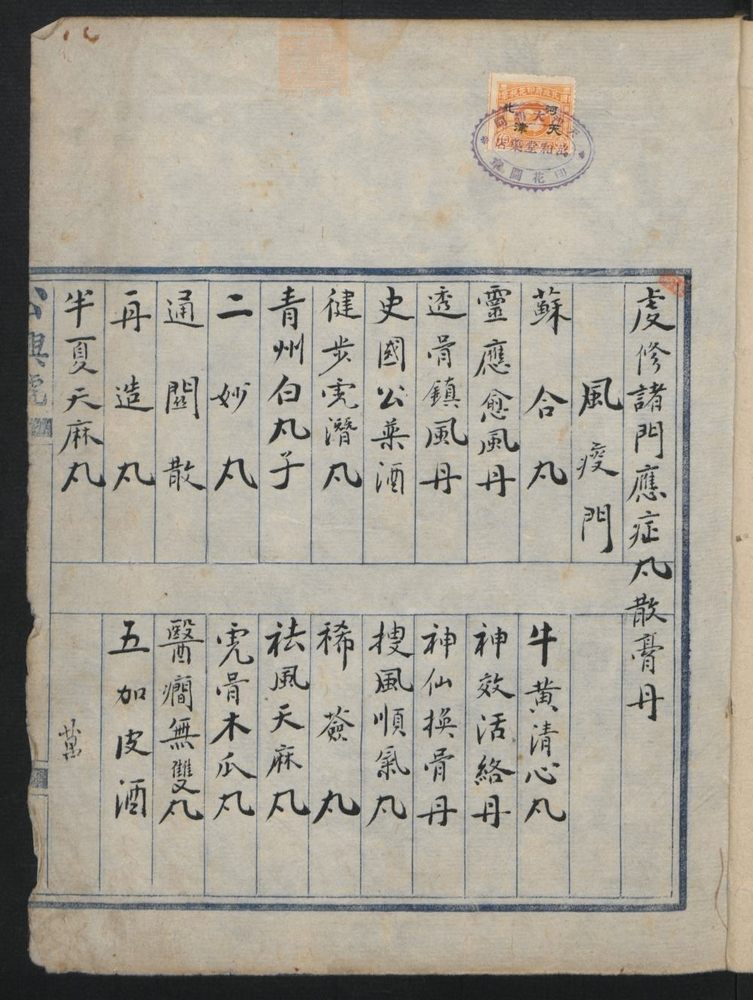 虔修諸門應症丸散膏丹
風痰門
蘇合丸
牛黄清心丸
靈應愈風丹
神效活絡丹
透骨鎮風丹
神仙換骨丹
史國公藥酒
搜風順氣丸
健步虎潛丸
豨薟丸
青州白丸子
祛風天麻丸
二妙丸
虎骨木瓜丸
通關散
醫癎無雙丸
再造丸
五加皮酒
半夏天麻丸
萬
河北
天津
萬和堂藥店
印花圖章